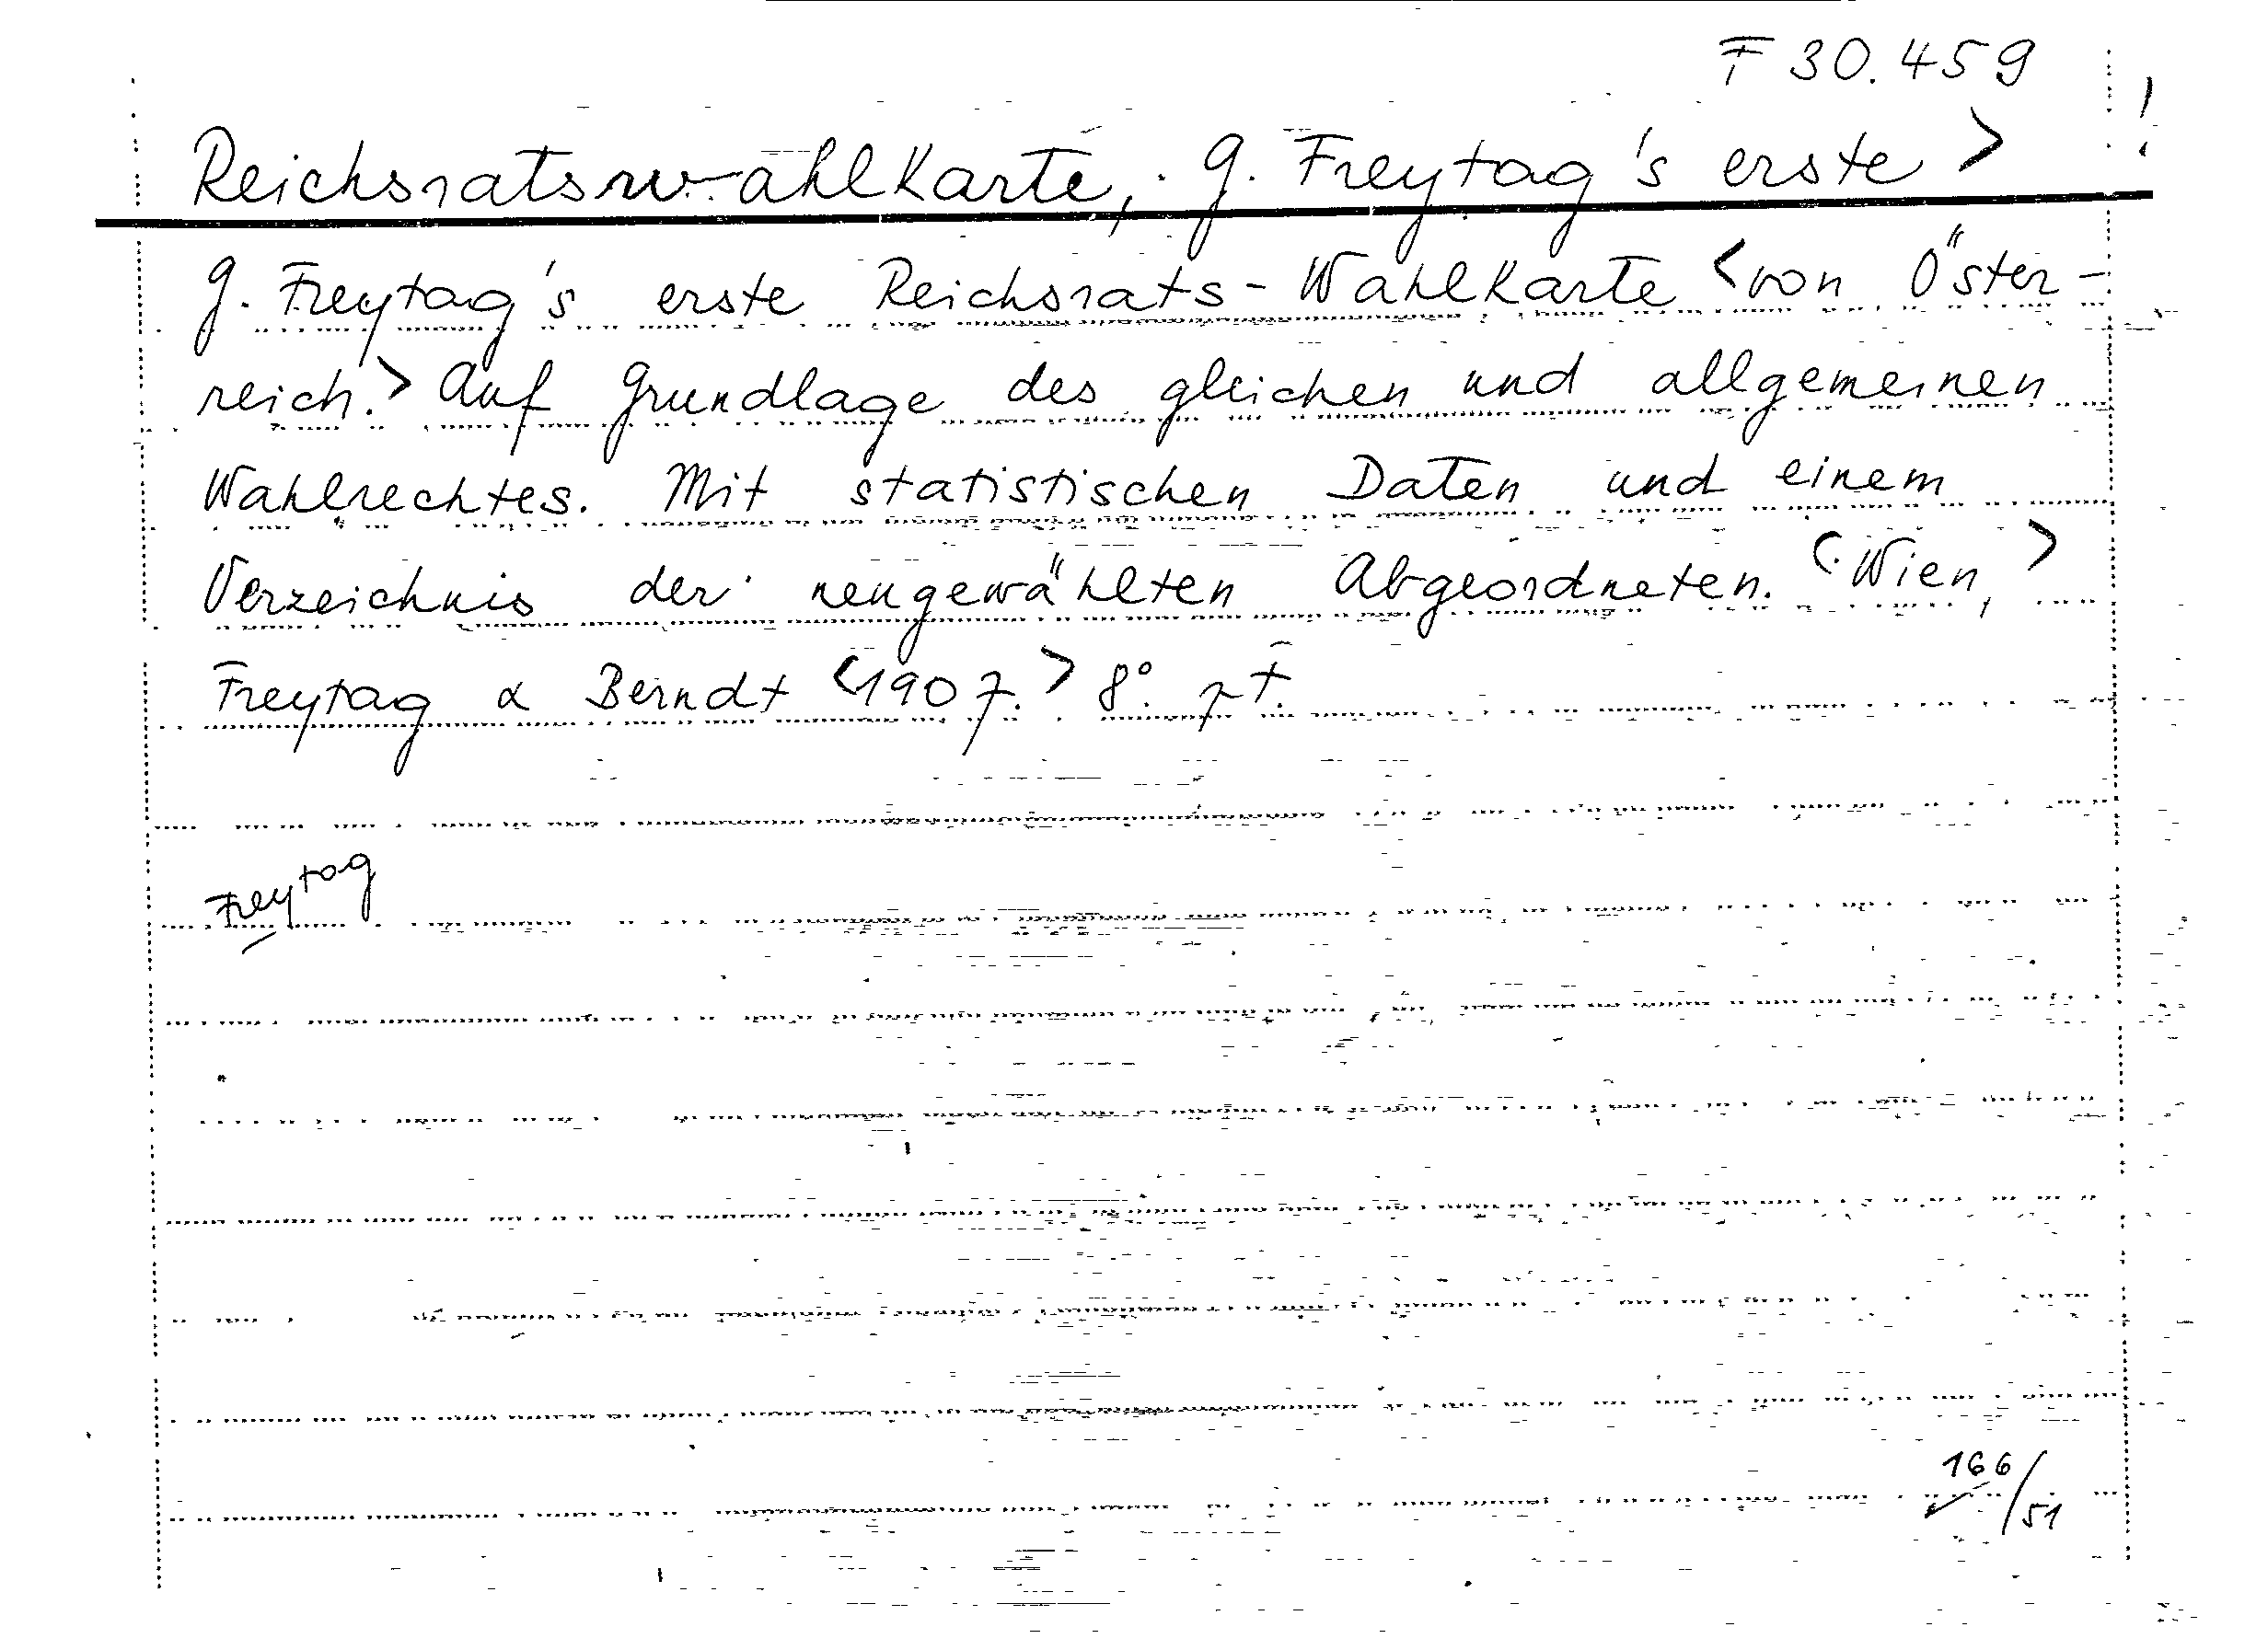 F 30.459
Reichsratswahlkarte, G. Freytag's erste > !
G. Freytag's erste Reichsrats-Wahlkarte <von Öster-
reich.> Auf Grundlage des gleichen und allgemeinen
Wahlrechtes. Mit statistischen Daten und einem
Verzeichnis der neugewählten Abgeordneten. <Wien,>
Freytag & Berndt <1907.> 8°.
Freytag
166/51